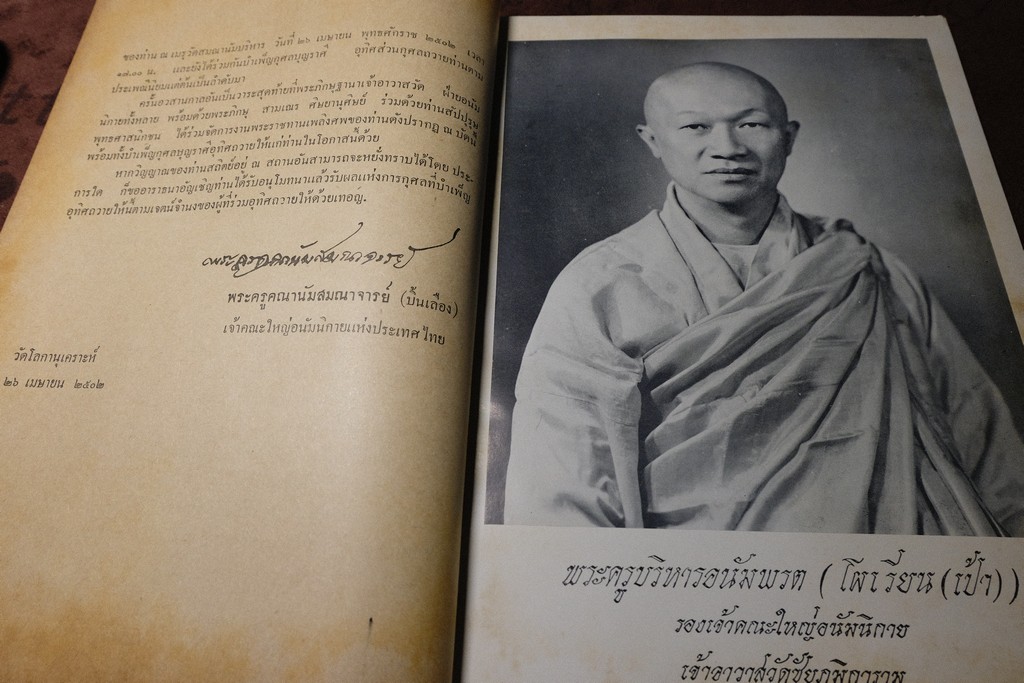 ของท่าน ณ เมรุวัดสมณานัมบริหาร วันที่ ๒๖ เมษายน พุทธศักราช ๒๕๐๒ เวลา
๑๗.๐๐ น. และยังได้ร่วมกันบำเพ็ญกุศลบุญราศี อุทิศส่วนกุศลถวายท่านตาม
ประเพณีนิยมแต่ต้นเป็นลำดับมา
ครั้นอวสานกาลอันเป็นวาระสุดท้ายที่พระภิกษุฐานาเจ้าอาวาสวัด ฝ่ายอนัม
นิกายทั้งหลาย พร้อมด้วยพระภิกษุ สามเณร ศิษยานุศิษย์ ร่วมด้วยท่านสัปปุรุษ
พุทธศาสนิกชน ได้ร่วมจัดการงานพระราชทานเพลิงศพของท่านดังปรากฏ ณ บัดนี้
พร้อมทั้งบำเพ็ญกุศลบุญราศีอุทิศถวายให้แก่ท่านในโอกาสนี้ด้วย
หากวิญญาณของท่านสถิตย์อยู่ ณ สถานอันสามารถจะหยั่งทราบได้โดย ประ-
การใด ก็ขออาราธนาอัญเชิญท่านได้รับอนุโมทนาแล้วรับผลแห่งการกุศลที่บำเพ็ญ
อุทิศถวายให้นี้ตามเจตน์จำนงของผู้ที่ร่วมอุทิศถวายให้ด้วยเทอญ.
พระครูคณานัมสมณาจารย์
พระครูคณานัมสมณาจารย์ (บิ๊นเลือง)
เจ้าคณะใหญ่อนัมนิกายแห่งประเทศไทย
วัดโลกานุเคราะห์
๒๖ เมษายน ๒๕๐๒
พระครูบริหารอนัมพรต (โผเรียน(เป้า))
รองเจ้าคณะใหญ่อนัมนิกาย
เจ้าอาวาสวัดชัยภูมิการาม